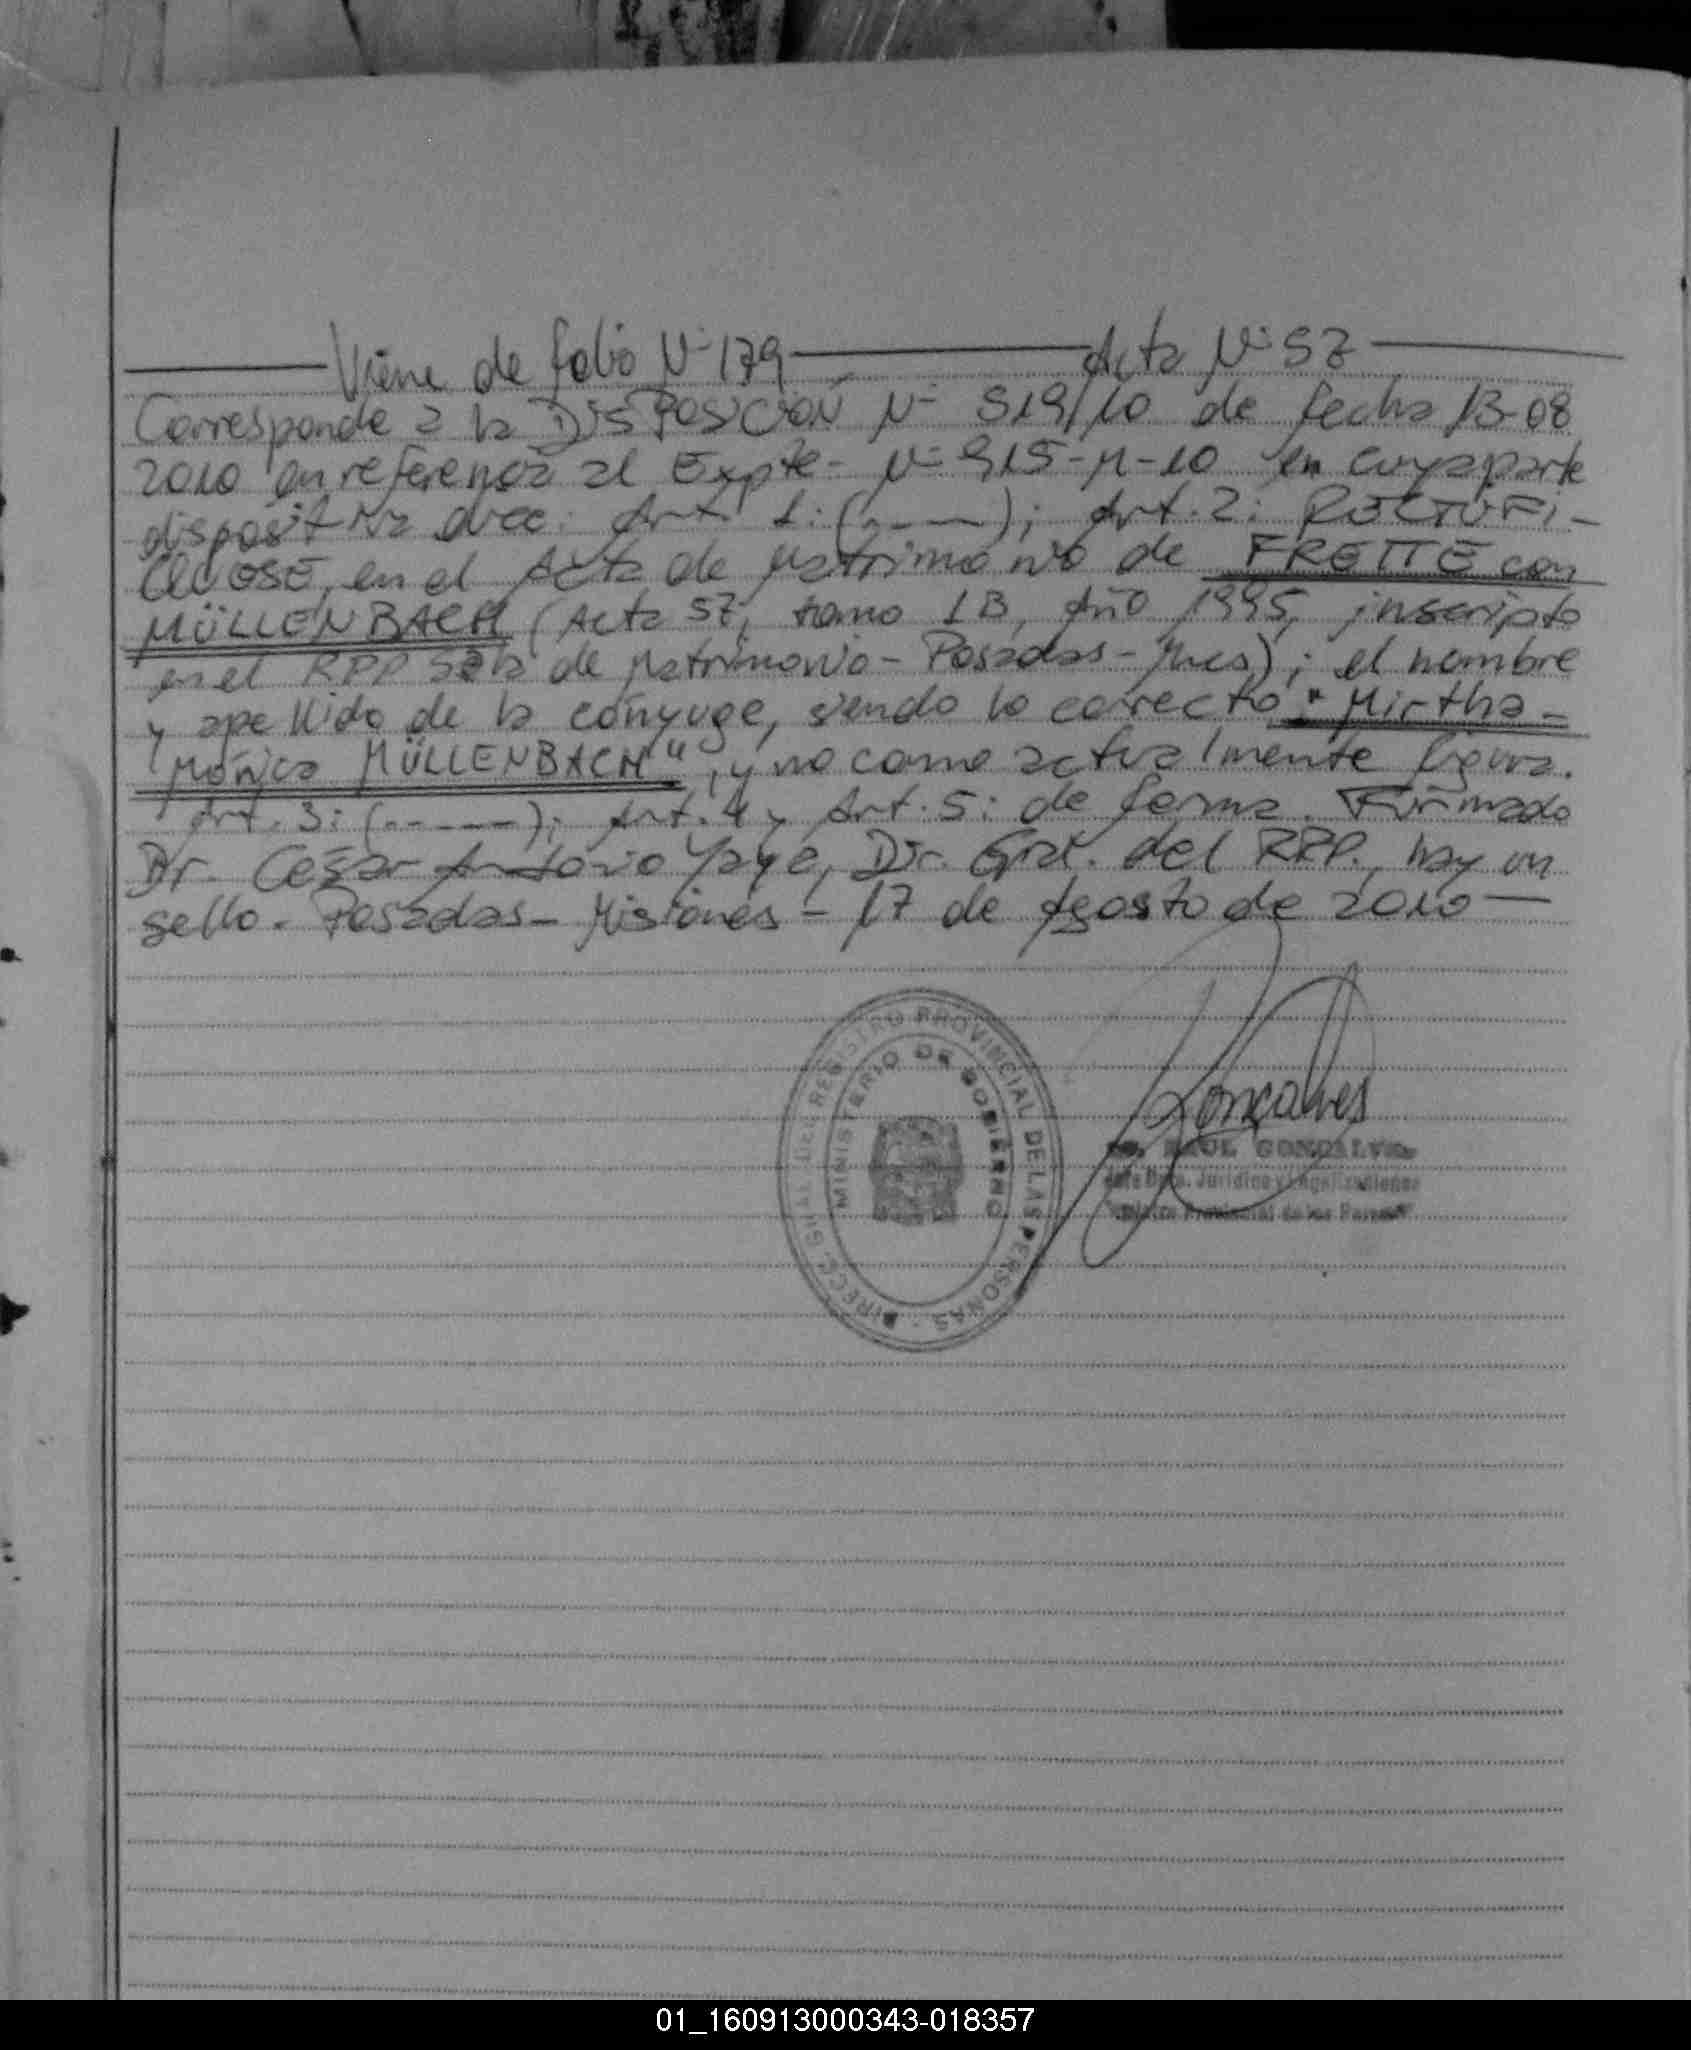 Viene de folio Nº 179 Acta Nº 57
Corresponde a la DISPOSICIÓN Nº 519/10 de fecha 13-08
2010 en referencia al Expte- Nº 915-M-10 en cuya parte
dispositiva dice: Art. 1: (-----); Art. 2: RECTIFI-
QUESE, en el Acta de Matrimonio de FRETTE con
MÜLLENBACH (Acta 57, tomo 1B, Año 1995, inscripto
en el RPP Sala de Matrimonio - Posadas - Mnes); el nombre
y apellido de la cónyuge, siendo lo correcto: "Mirtha-
Mónica MÜLLENBACH", y no como actualmente figura.
Art. 3: (-----); Art. 4 y Art. 5: de forma. Firmado
Dr. César Antonio Yaya, Dir. Gral. del RPP., hay un
sello. Posadas - Misiones - 17 de Agosto de 2010
DIRECC. GRAL. DEL REGISTRO PROVINCIAL DE LAS PERSONAS
MINISTERIO DE GOBIERNO
Gonçalves
RAUL GONÇALVES
Jefe Dpto. Jurídico y
Provincial de las Personas
01_160913000343-018357